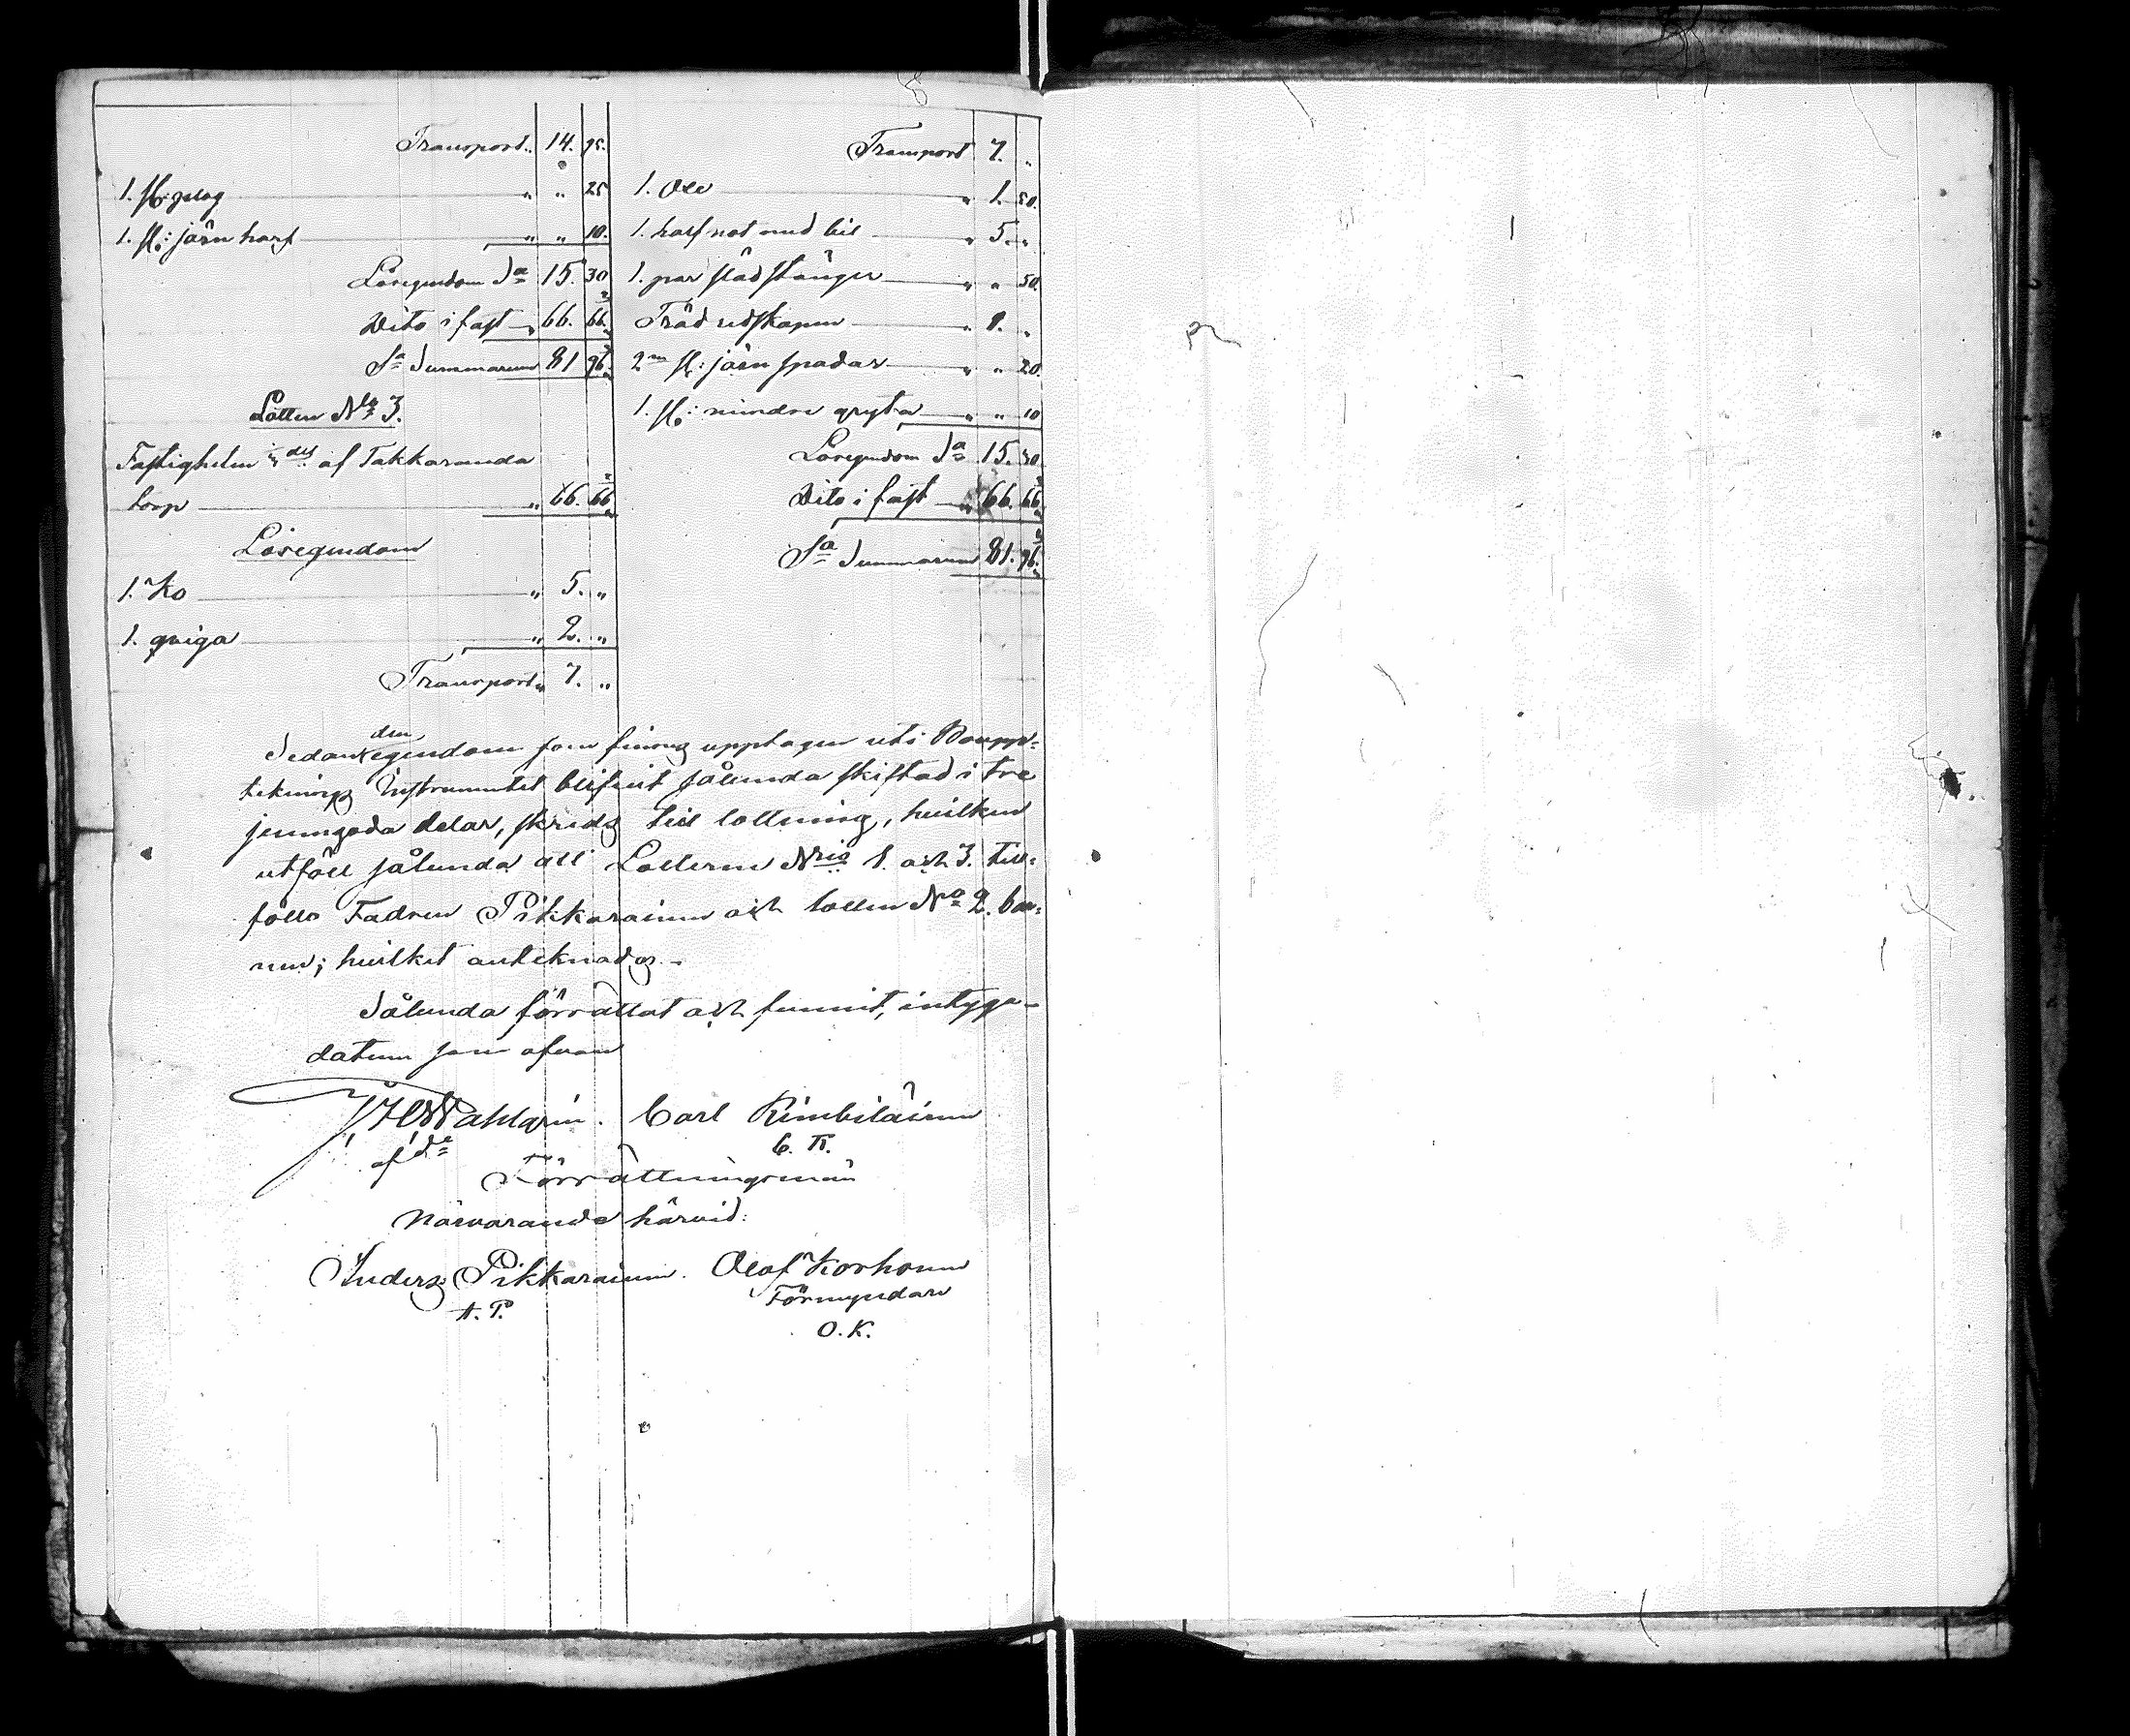 Transport „ 14. 95.
1. st: plog „ „ 25
1. st: järn harf „ „ 10.
Lösegendom Sa 15. 30
Dito i fast „ 66. 66.
Sa Summarum 81 96.
Lotten No 3.
Fastigheten 1/3 del af Takkaranda
torp „ 66. 66
Lösegendom
1. Ko „ 5. „
1. qviga „ 2. „
Transport „ 7. „
Transport 7. „
1. „ 1. 50.
1. half not med „ 5. „
1. par städ stänger „ „ 50.
Träd redskapen „ 1. „
2ne st: järn spadar „ „ 20.
1. st: mindre gryta „ „ 10
Lösegendom Sa 15. 30
Dito i fast „ 66. 66
Sa Summarum 81. 96.
Sedan den egendom som finnes upptagen uti Boupp=
teknings Instrumentet blifvit sålunda skiftad i tre
jemngoda delar, skreds till lottning, hvilken
utföll sålunda att Lotterne Nris 1. och 3. till=
föllo Fadren Pikkarainen och lotten No 2. bar=
nen; hvilket anteknades.
Sålunda förrättat och funnit, intyga
datum som ofvan
J H Wahlgrén. Carl Kimbiläinen
C. K.
Förrättningsmän
Närvarande härvid:
Anders Pikkarainen. Olof Korhonen
A. P. Förmyndare
O. K.